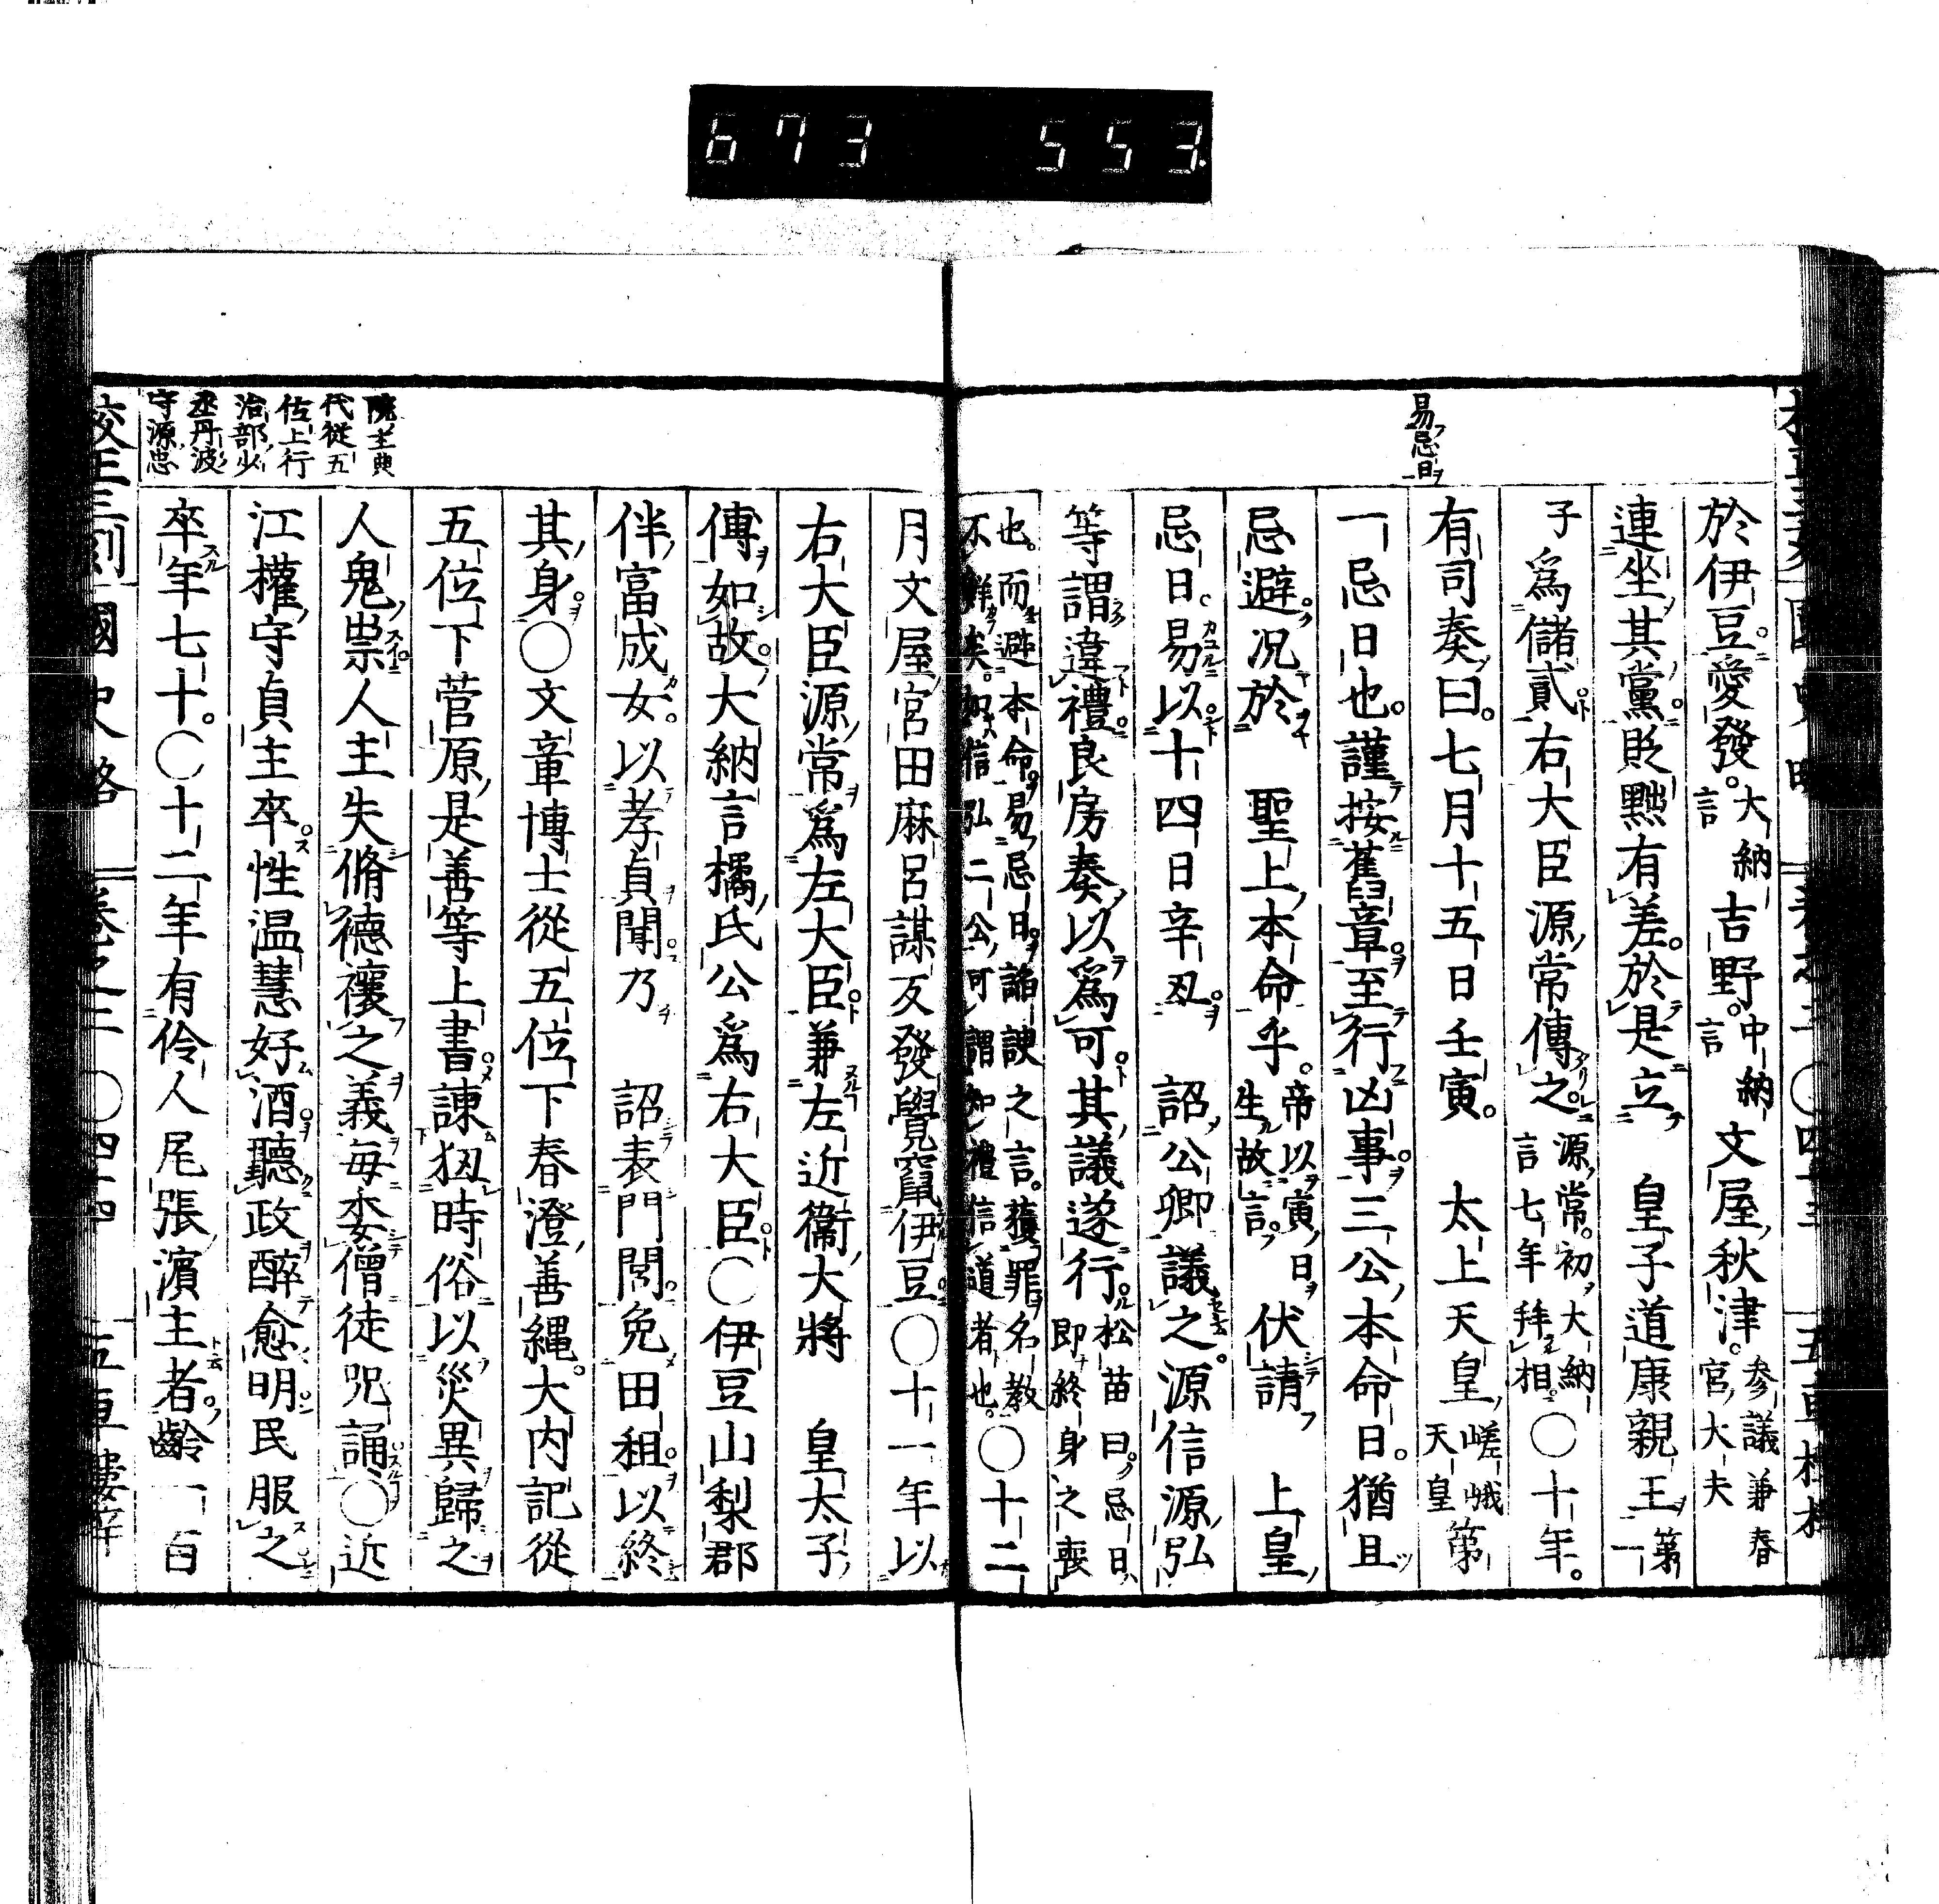 673 553
易忌日
於伊豆愛發大納言吉野中納言文屋秋津参議兼春宮大夫
連坐其黨貶黜有差於是立 皇子道康親王第一
子爲儲貳右大臣源常傳之源常初大納言七年拜相〇十年
有司奏曰七月十五日壬寅 太上天皇嵯峨天皇第
一忌日也謹按舊章至行凶事三公本命日猶且
忌避況於 聖上本命乎帝以寅日生故言伏請 上皇
忌日易以十四日辛丑 詔公卿議之源信源弘
等謂違禮良房奏以爲可其議遂行松苗曰忌日即終身之喪
也而避本命易忌日諂諛之言獲罪名教不鮮矣如信弘二公可謂知禮信道者也〇十二
月文屋宮田麻呂謀反發覺竄伊豆〇十一年以
右大臣源常爲左大臣兼左近衞大將 皇太子
傳如故大納言橘氏公爲右大臣〇伊豆山梨郡
伴富成女以孝貞聞乃 詔表門閭免田租以終
其身〇文章博士從五位下春澄善縄大内記從
五位下菅原是善等上書諫扨時俗以災異歸之
人鬼祟人主失脩德禳之義毎委僧徒咒誦〇近
江權守貞主卒性温慧好酒聽政醉愈明民服之
卒年七十〇十二年有伶人尾張濱主者齡一百
院主典
代從五
位上行
治部少
丞丹波
守源忠
校正三刻 國史略 卷之二 〇四十四 五車樓梓